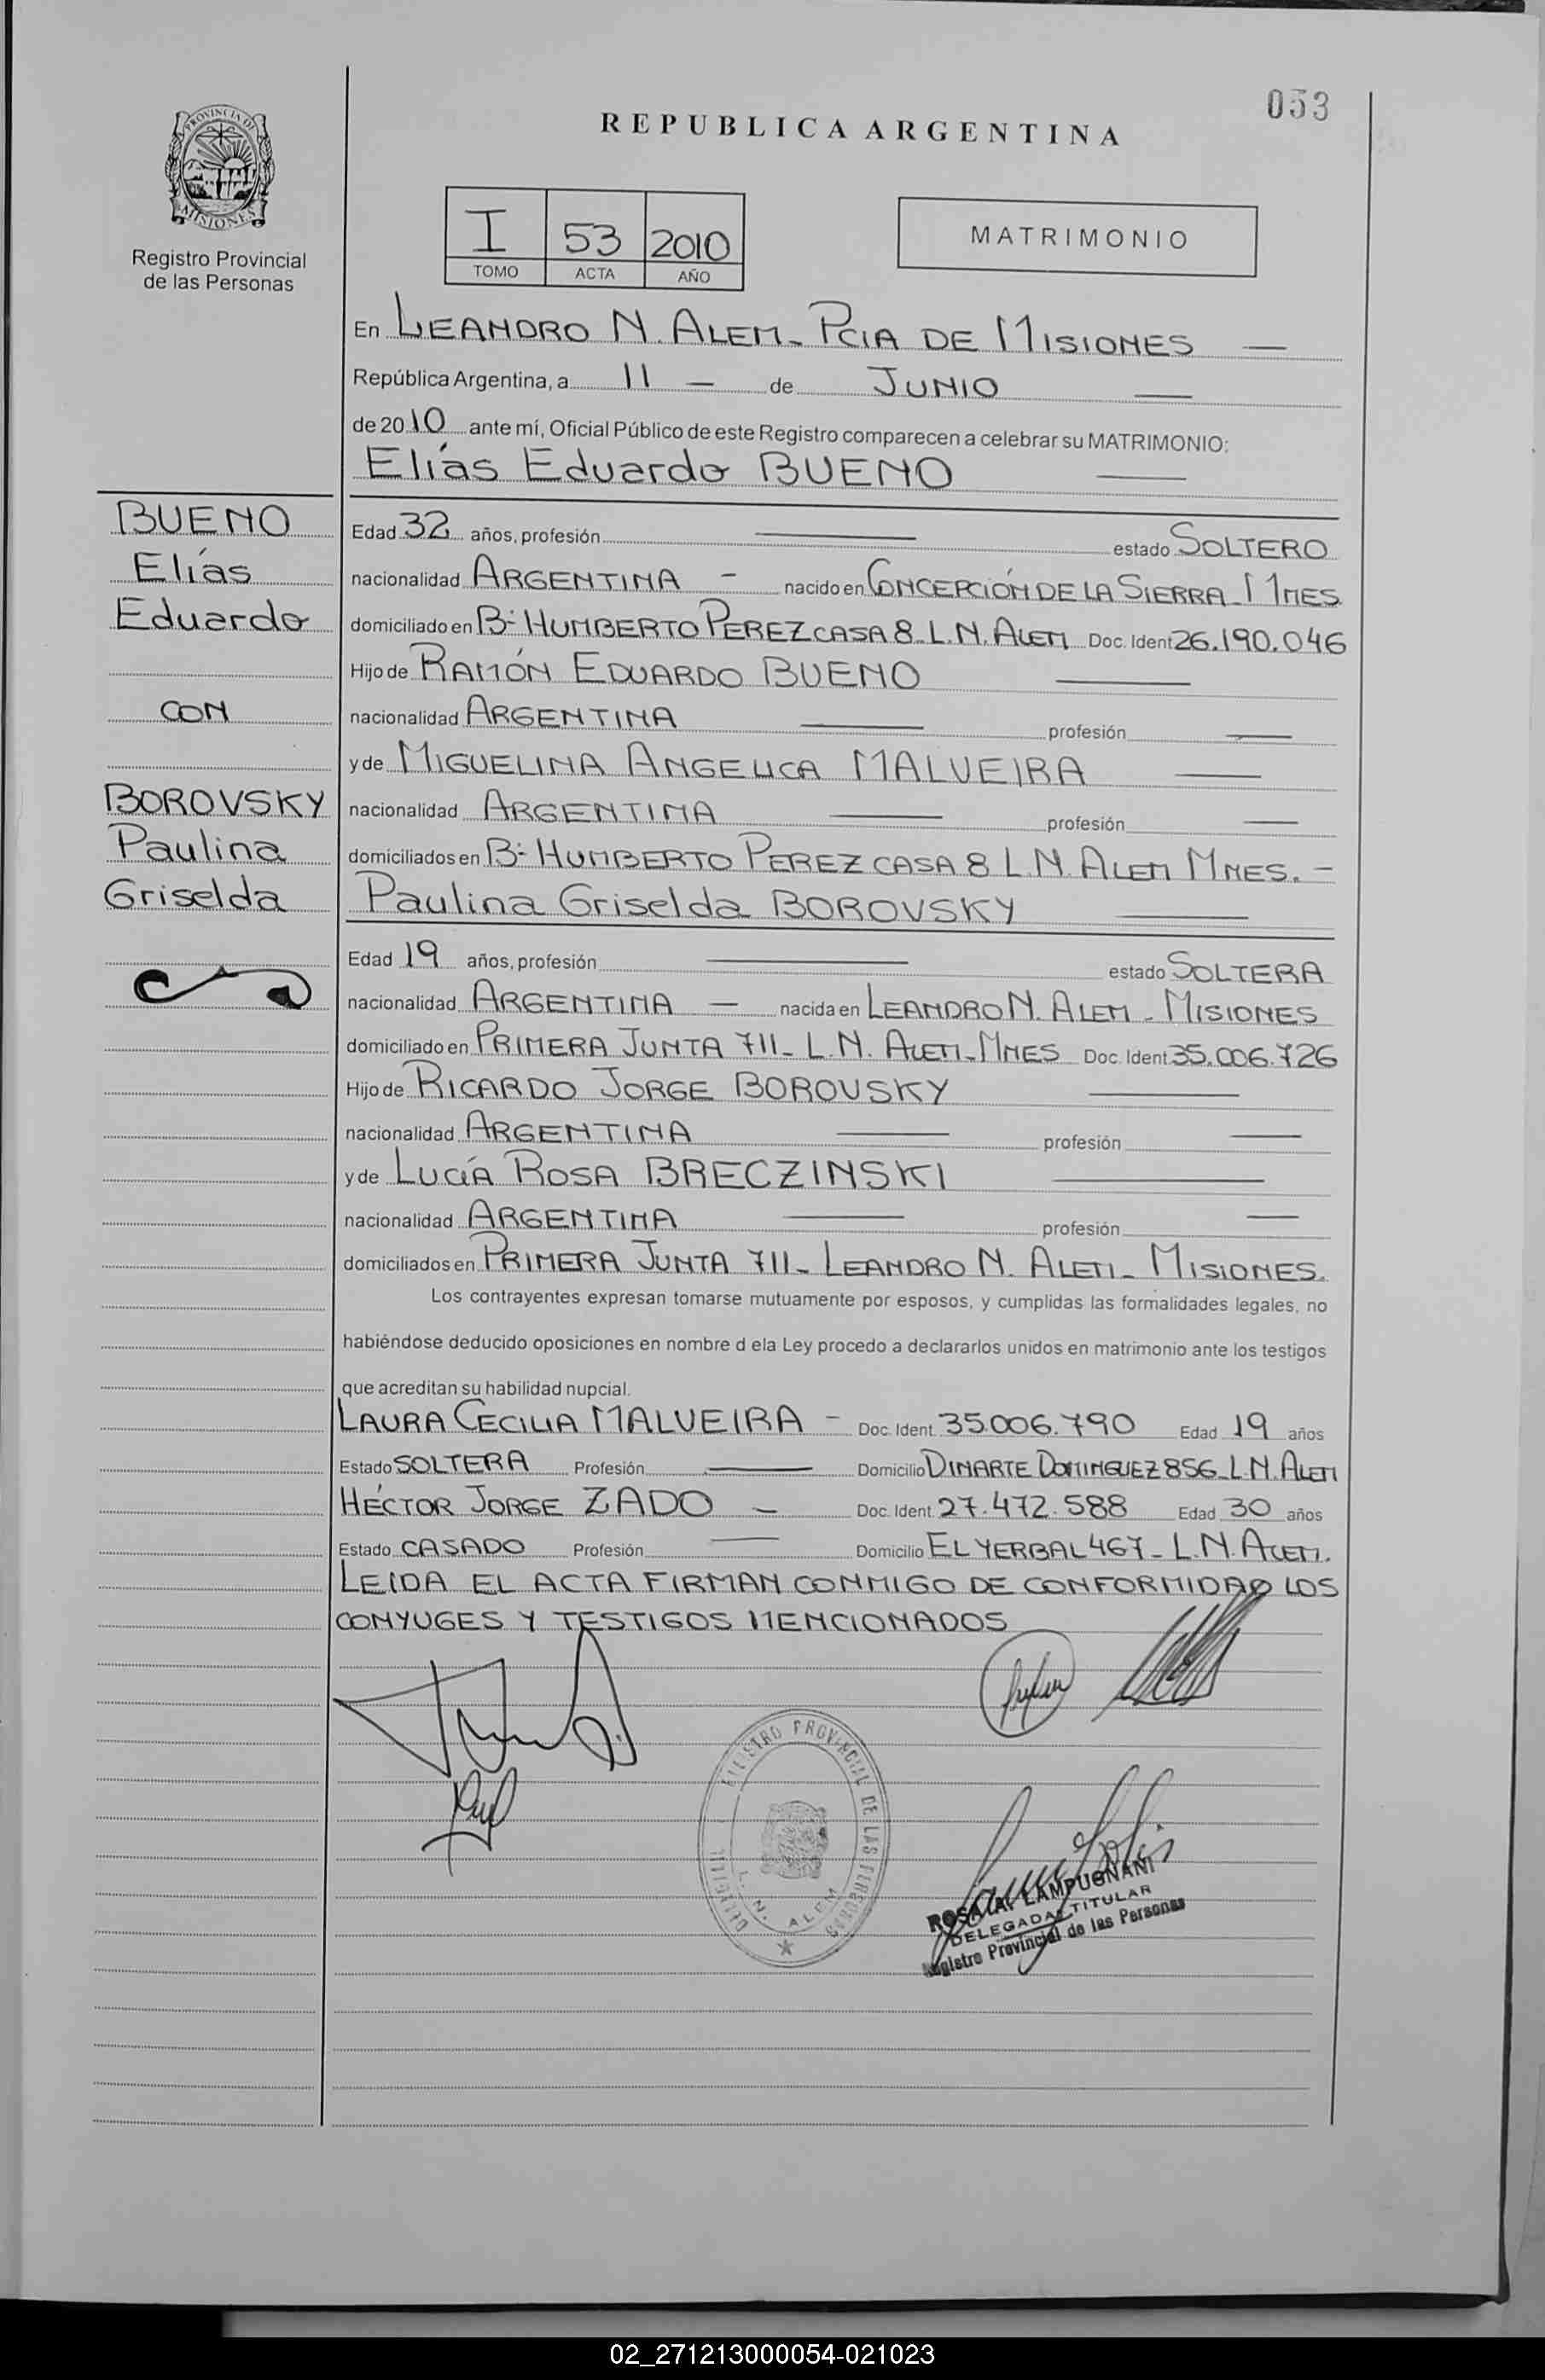 053
REPUBLICA ARGENTINA
PROVINCIA DE
MISIONES
Registro Provincial
de las Personas
I 53 2010
TOMO ACTA AÑO
MATRIMONIO
En LEANDRO N. ALEM - PCIA DE MISIONES
República Argentina, a 11 - de JUNIO
de 2010 ante mí, Oficial Público de este Registro comparecen a celebrar su MATRIMONIO:
Elías Eduardo BUENO
BUENO
Elías
Eduardo
CON
BOROVSKY
Paulina
Griselda
Edad 32 años, profesión estado SOLTERO
nacionalidad ARGENTINA - nacido en CONCEPCIÓN DE LA SIERRA - MNES
domiciliado en Bº HUMBERTO PEREZ CASA 8 - L.N. ALEM Doc. Ident 26.190.046
Hijo de RAMÓN EDUARDO BUENO
nacionalidad ARGENTINA profesión
y de MIGUELINA ANGELICA MALVEIRA
nacionalidad ARGENTINA profesión
domiciliados en Bº HUMBERTO PEREZ CASA 8 L.N. ALEM MNES. -
Paulina Griselda BOROVSKY
Edad 19 años, profesión estado SOLTERA
nacionalidad ARGENTINA - nacida en LEANDRO N. ALEM - MISIONES
domiciliado en PRIMERA JUNTA 711 - L.N. ALEM - MNES Doc. Ident 35.006.726
Hijo de RICARDO JORGE BOROVSKY
nacionalidad ARGENTINA profesión
y de LUCÍA ROSA BRECZINSKI
nacionalidad ARGENTINA profesión
domiciliados en PRIMERA JUNTA 711 - LEANDRO N. ALEM - MISIONES.
Los contrayentes expresan tomarse mutuamente por esposos, y cumplidas las formalidades legales, no
habiéndose deducido oposiciones en nombre d ela Ley procedo a declararlos unidos en matrimonio ante los testigos
que acreditan su habilidad nupcial.
LAURA CECILIA MALVEIRA - Doc. Ident. 35.006.790 Edad 19 años
Estado SOLTERA Profesión Domicilio DINARTE DOMINGUEZ 856 - L.N. ALEM
HÉCTOR JORGE ZADO - Doc. Ident. 27.472.588 Edad 30 años
Estado CASADO Profesión Domicilio EL YERBAL 467 - L.N. ALEM.
LEIDA EL ACTA FIRMAN CONMIGO DE CONFORMIDAD LOS
CONYUGES Y TESTIGOS MENCIONADOS
REGISTRO PROVINCIAL DE LAS PERSONAS
L. N. ALEM
ROSA A. LAMPUGNANI
DELEGADA TITULAR
Registro Provincial de las Personas
02_271213000054-021023